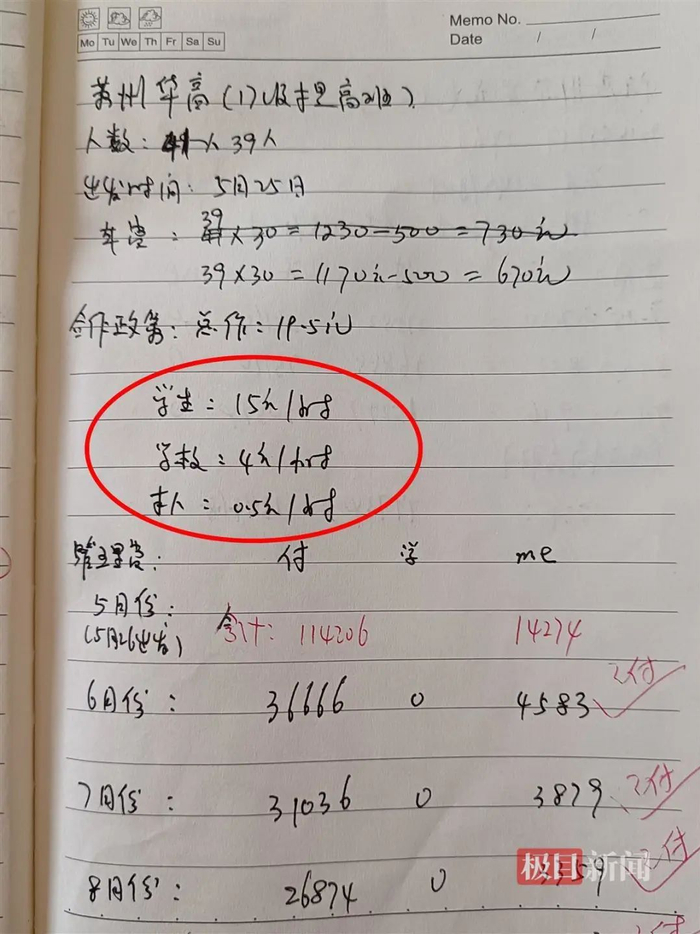 Memo No.
Mo Tu We Th Fr Sa Su
Date / /
苏州华高(17级扌里高班)
人数: 41人 39人
出发时间: 5月25日
车费: 39 41×30=1230-500=730元
39×30=1170元-500=670元
合作政策: 总价: 19.5元
学生: 15元/时
学校: 4元/时
本人: 0.5元/时
管理费: 付 学 me
5月份:
(5月26出发) 合计: 114206 14274
6月份: 36666 0 4583 已付
7月份: 31036 0 3879 已付
8月份: 26874 0 3359 已付
极目新闻